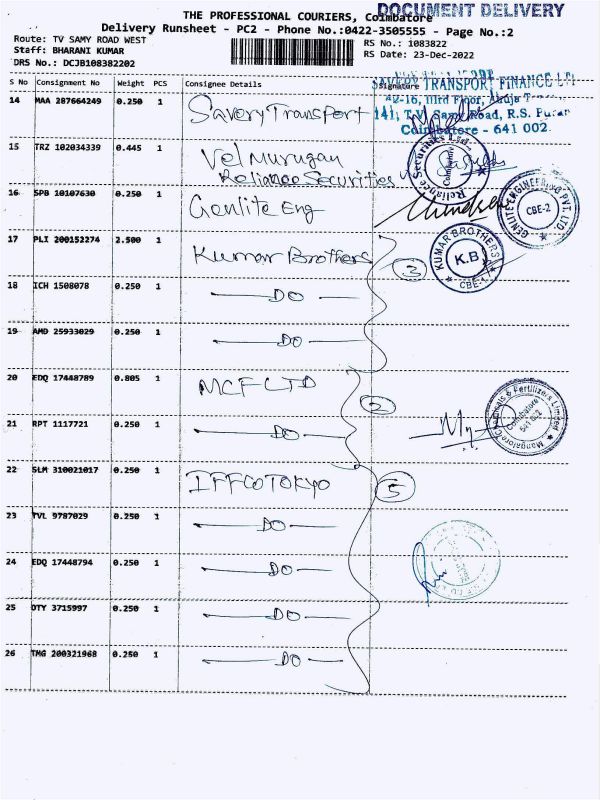 DOCUMENT DELIVERY
THE PROFESSIONAL COURIERS, Coimbatore
Delivery Runsheet - PC2 - Phone No.:0422-3505555 - Page No.:2
Route: TV SAMY ROAD WEST
RS No.: 1083822
Staff: BHARANI KUMAR
RS Date: 23-Dec-2022
DRS No.: DCJB108382202
S No Consignment No Weight PCS Consignee Details Signature
SAVERY TRANSPORT FINANCE LTD
14 MAA 287664249 0.250 1 Savery Transport
A2-16, IIIrd Floor,
141, T.V. Samy Road, R.S. Puram
Coimbatore - 641 002
15 TRZ 102034339 0.445 1 Vel Murugan
Reliance Securities
Reliance Securities Ltd.
Coimbatore
16 SPB 10107630 0.250 1 Genlite Eng
GENLITE ENGINEERING PVT. LTD.
CBE-2
17 PLI 200152274 2.500 1 Kumar Brothers
3
KUMAR BROTHERS
K.B
CBE-1
18 ICH 1508078 0.250 1 DO
19 AMD 25933029 0.250 1 DO
20 EDQ 17448789 0.805 1 MCF LTD
2
Mangalore Chemicals & Fertilizers Limited
Coimbatore
641 002
21 RPT 1117721 0.250 1 DO
22 SLM 310021017 0.250 1 IFFCO TOKYO
5
23 TVL 9787029 0.250 1 DO
24 EDQ 17448794 0.250 1 DO
25 OTY 3715997 0.250 1 DO
26 TMG 200321968 0.250 1 DO